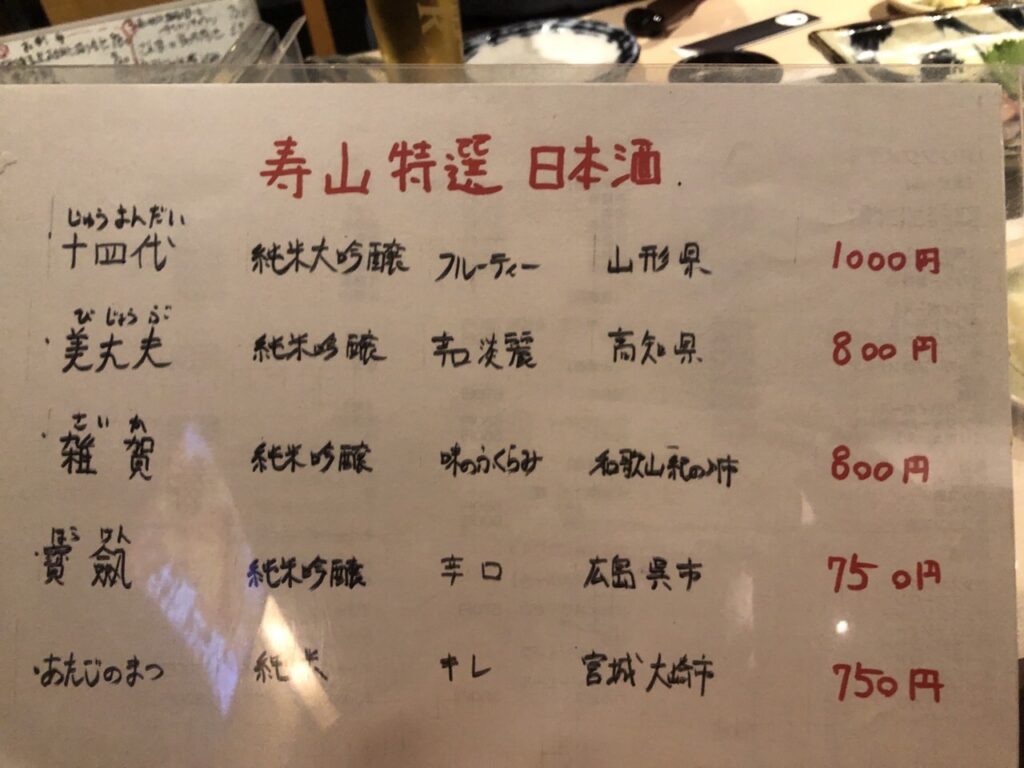 寿山 特選 日本酒
じゅうよんだい
・十四代 純米大吟醸 フルーティー 山形県 1000円
びじょうぶ
・美丈夫 純米吟醸 辛口淡麗 高知県 800円
さいか
・雑賀 純米吟醸 味のふくらみ 和歌山紀の川市 800円
ほうけん
・寶劔 純米吟醸 辛口 広島呉市 750円
・あたごのまつ 純米 キレ 宮城大崎市 750円